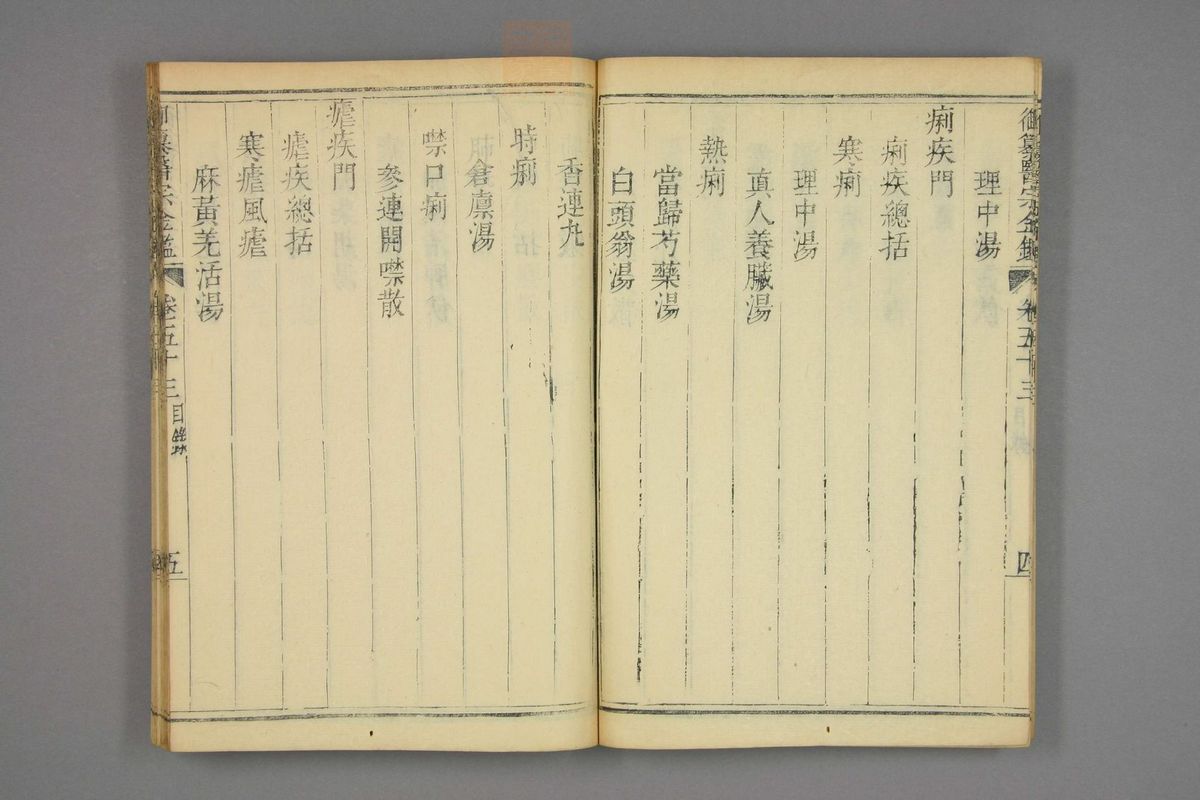 御纂醫宗金鑑 卷五十三 四
理中湯
痢疾門
痢疾總括
寒痢
理中湯
真人養臟湯
熱痢
當歸芍藥湯
白頭翁湯
香連丸
時痢
倉廩湯
噤口痢
參連開噤散
瘧疾門
瘧疾總括
寒瘧風瘧
麻黃羌活湯
御纂醫宗金鑑 卷五十三 目錄 五